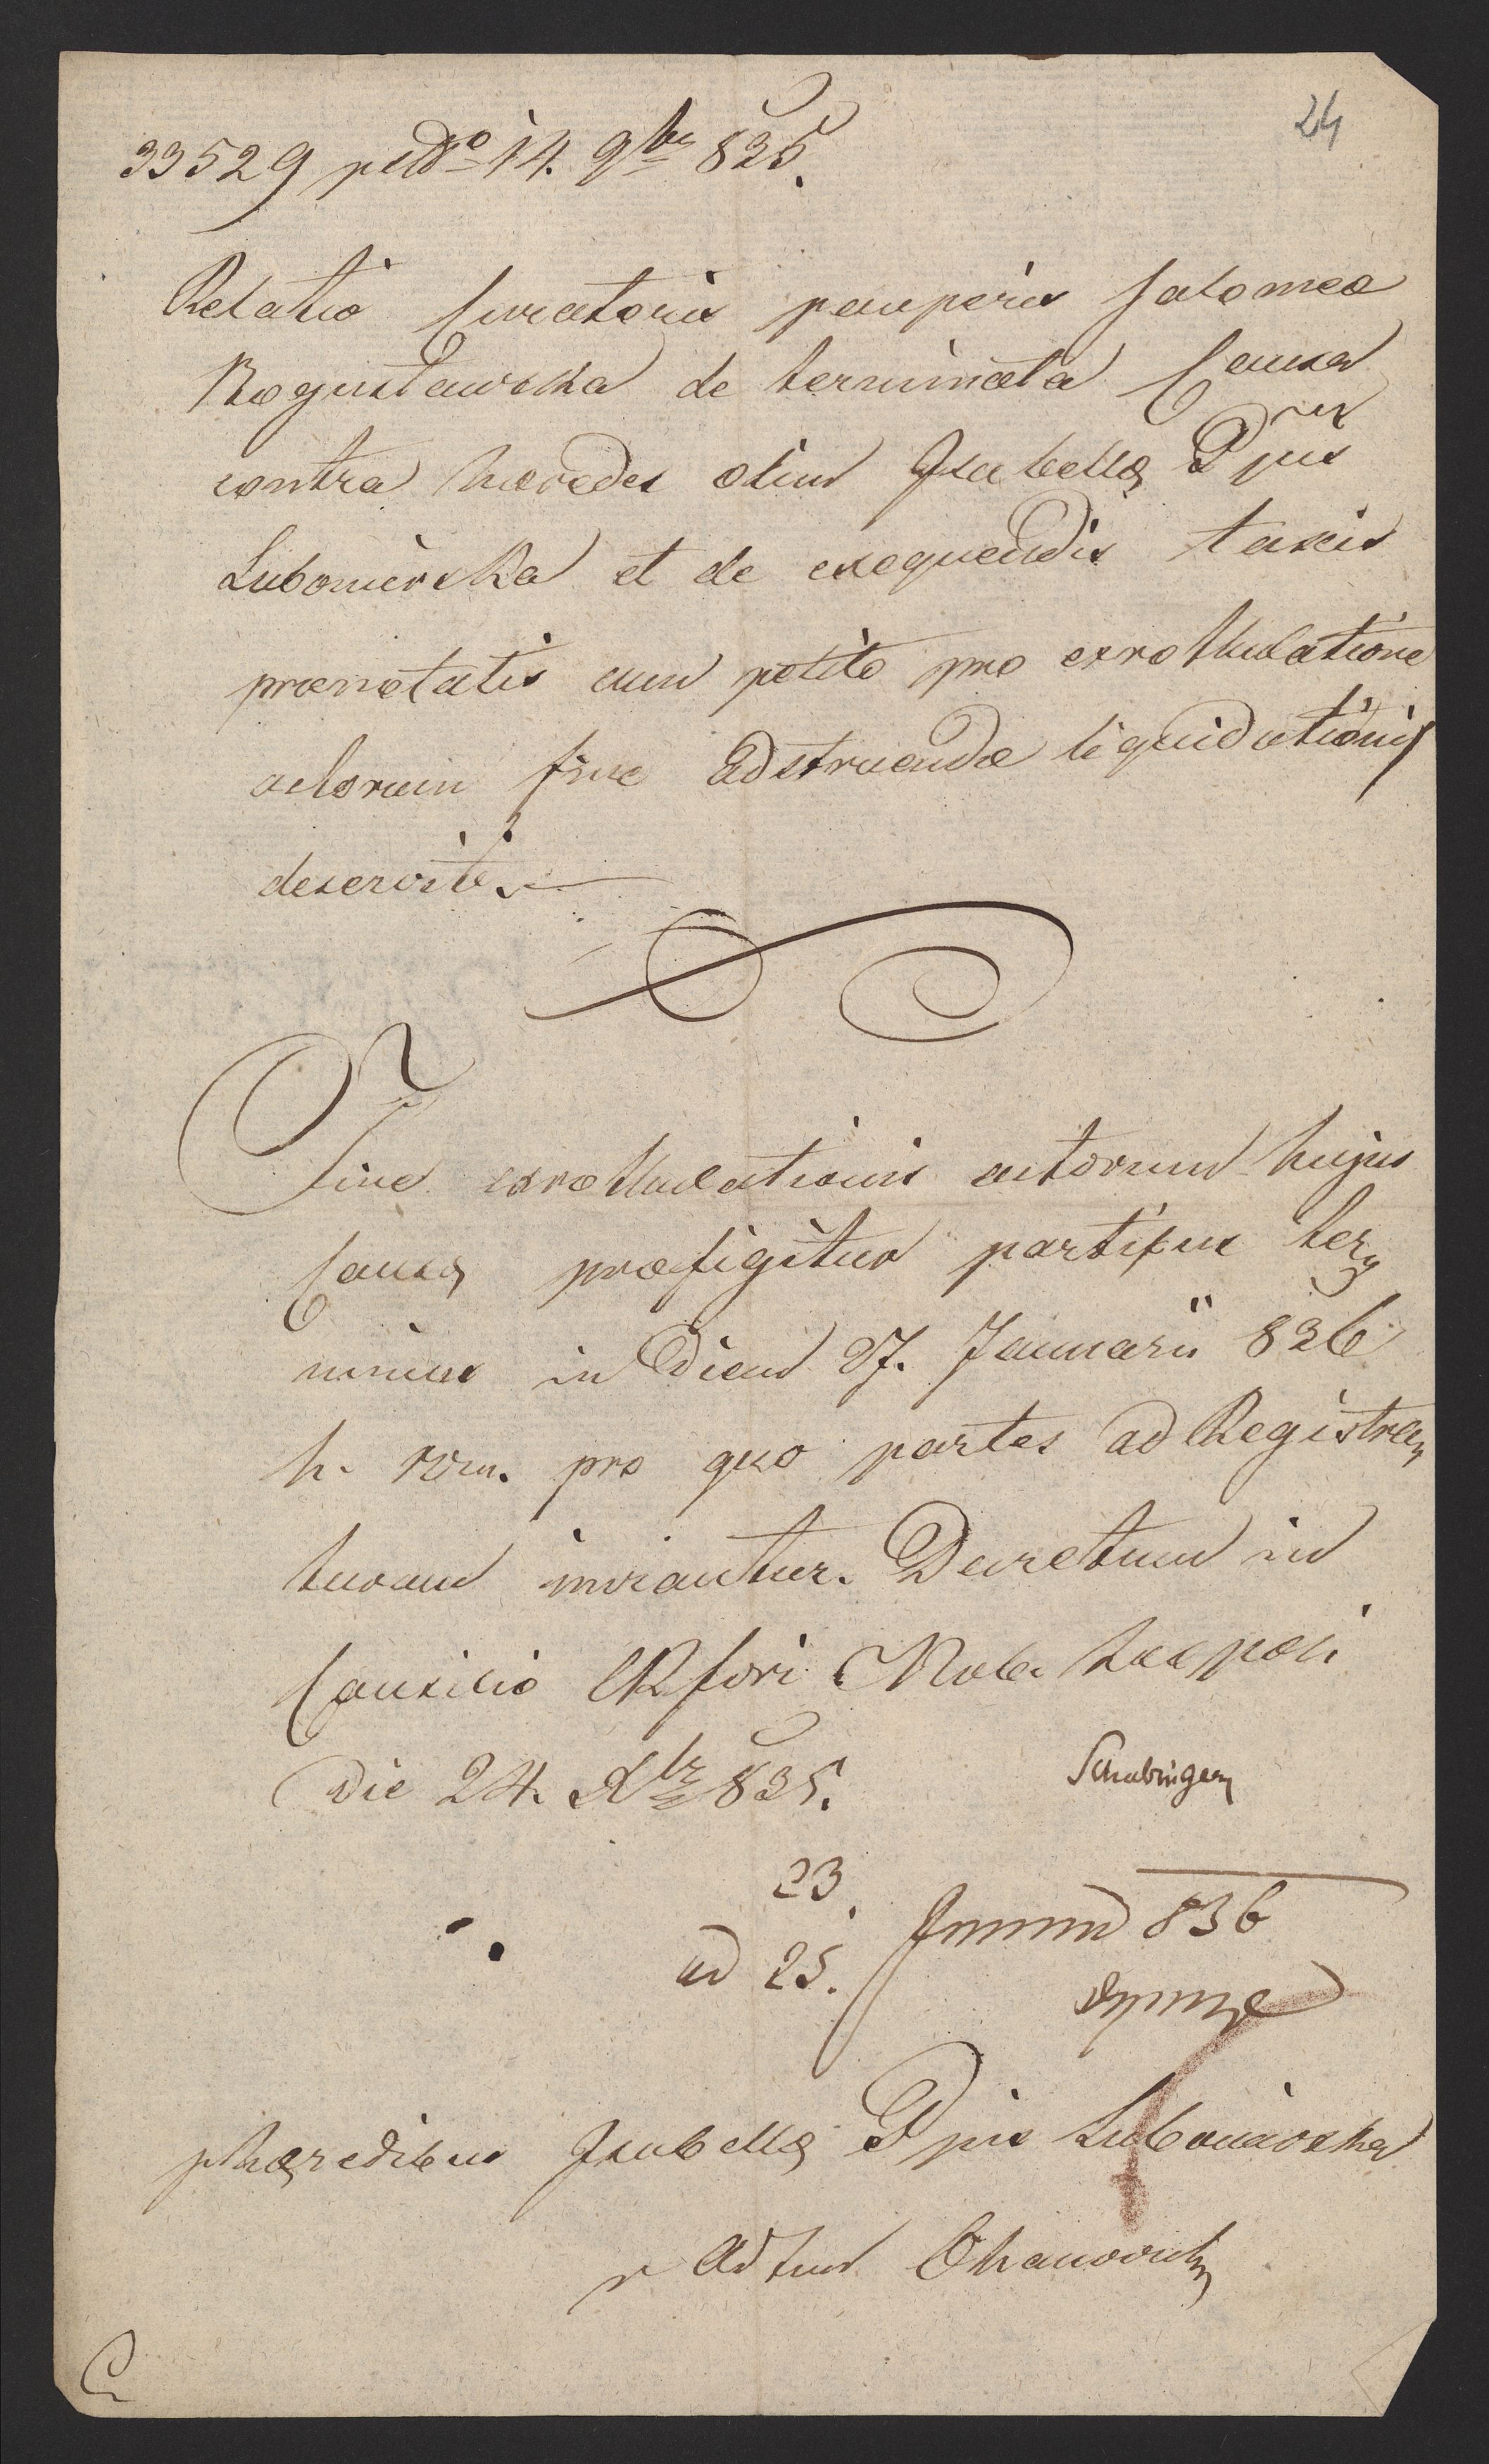 24
33529 pctdo 14. 9br 835.
Relatio Curatoris pauperis Salomea
Bogusławska de terminata Causa
contra haeredes olim Isabellae Ppis
Lubomirska et de exequendis taxis
praenotatis cum petito pro exrottulatione
actorum fine adstruendae liquidationis
deserviti.
Fine exrottulationis actorum hujus
Causae praefigitur partibus ter
minus in diem 27. Januarii 836
h. 10m. pro quo partes ad Registra
turam inviantur. Decretum in
Consilio CR fori Nob. Leopoli
Die 24. Xbr 835.
23
ad 25. 836
phaeredibus Isabellae Ppis Lubomirska
r Adtum